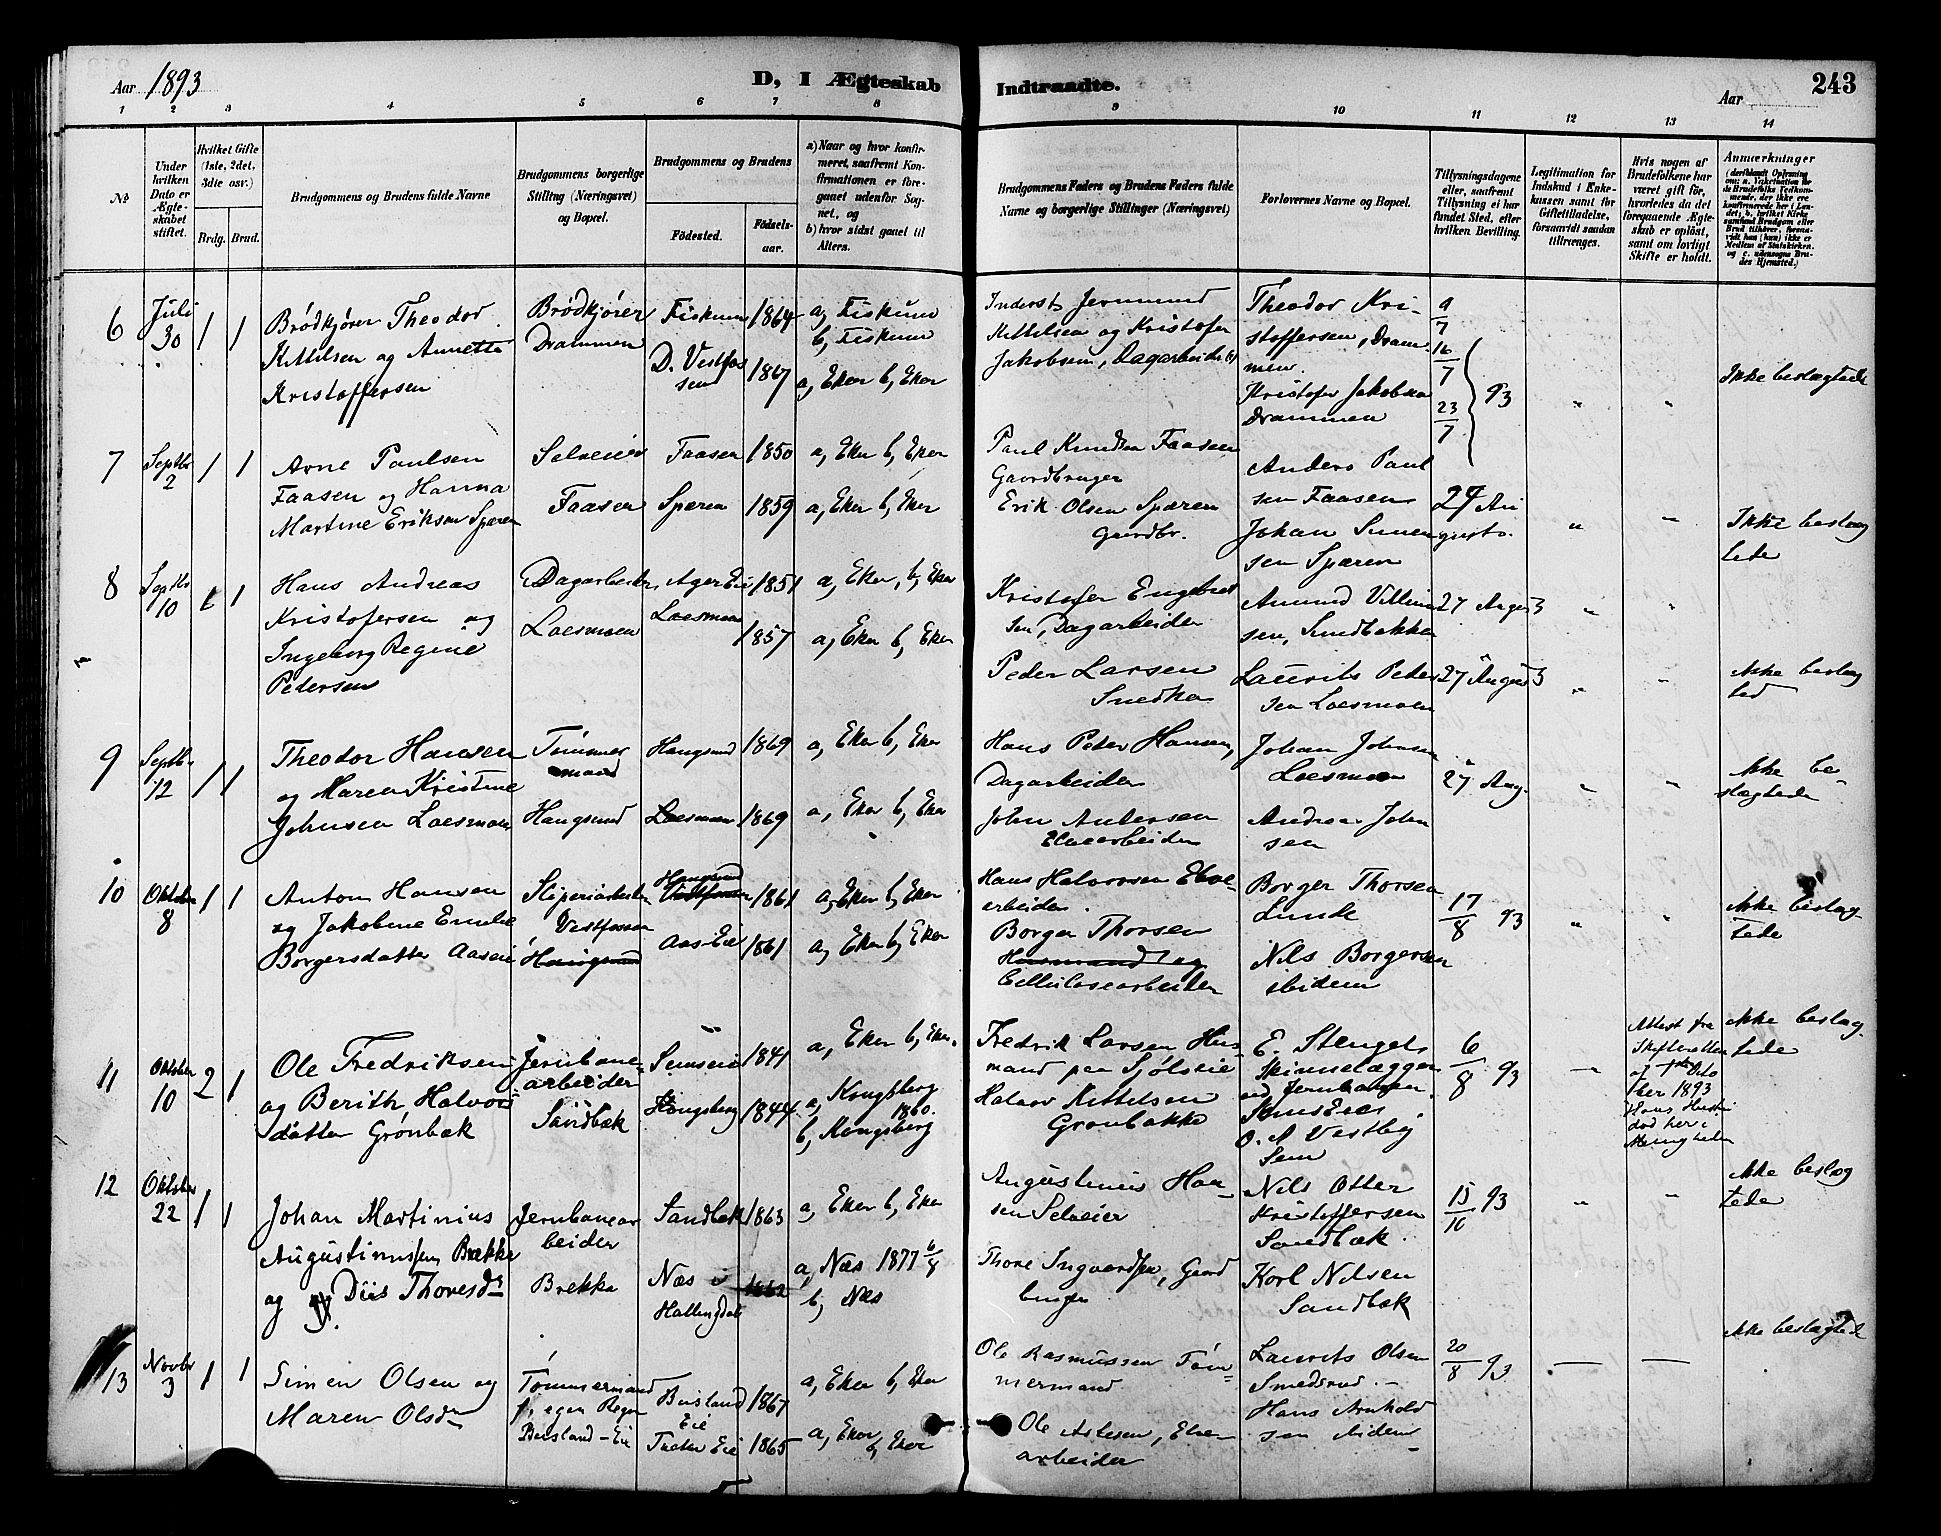 Aar 1893
D, I Ægteskab Indtraadte.
Aar
243
1 2 3 4 5 6 7 8 9 10 11 12 13 14
№
Under hvilken Dato er Ægteskabet stiftet.
Hvilket Gifte (1ste, 2det, 3die osv.)
Brdg. Brud.
Brudgommens og Brudens fulde Navne
Brudgommens borgerlige Stilling (Næringsvei) og Bopæl.
Brudgommens og Brudens
Födested.
Födselsaar.
a) Naar og hvor konfirmeret, saafremt Konfirmationen er foregaaet udenfor Sognet, og
b) hvor sidst gaaet til Alters.
Brudgommens Faders og Brudens Faders fulde Navne og borgerlige Stillinger (Næringsvei)
Forlovernes Navne og Bopæl.
Tillysningsdagene eller, saafremt Tillysning ei har fundet Sted, efter hvilken Bevilling.
Legitimation for Indskud i Enkekassen samt for Giftetilladelse, forsaavidt saadan tiltrænges.
Hvis nogen af Brudefolkene har været gift før, hvorledes da det foregaaende Ægteskab er opløst, samt om lovligt Skifte er holdt.
Anmærkninger
6 Juli 30 1 1
Brödkjörer Theodor
Kittilsen og Annette
Kristoffersen
Brödkjörer
Drammen
Fiskum 1864
D. Vestfossen 1867
a, Fiskum
b, Fiskum
a, Eker b, Eker
Inderst Jermund
Kittelsen og Kristofer
Jakobsen, Dagarbeider
Theodor Kristoffersen, Drammen.
Kristofer Jakobsen
Drammen
9/7 16/7 23/7 93
" "
Ikke beslægtede
7 Septbr 2 1 1
Arne Paulsen
Faasen og Hanna
Martine Eriksen Spæren
Selveier
Faasen
Faasen 1850
Spæren 1859
a, Eker b, Eker
a, Eker b, Eker
Paul Knudsen Faasen
Gaardbruger
Erik Olsen Spæren
Gaardbr.
Anders Paulsen Faasen
Johan Simensen Spæren
27 Augusto.
" "
Ikke beslægtede
8 Septbr 10 1 1
Hans Andreas
Kristofersen og
Ingeborg Regine
Petersen
Dagarbeider
Loesmoen
Ager Eie 1851
Loesmoen 1857
a, Eker, b, Eker
a, Eker b, Eker
Kristofer Engebretsen, Dagarbeider
Peder Larsen
Snedker
Amund Villumsen, Smedbakken
Laurits Petersen Loesmoen
27 August
27 August
" "
" "
Ikke beslægted
9 Septbr 12 1 1
Theodor Hansen
og Maren Kristine
Johnsen Loesmoen
Tömmermand
Haugsund
Haugsund 1869
Loesmoen 1869
a, Eker b, Eker
a, Eker b, Eker
Hans Peter Hansen,
Dagarbeider
John Andersen
Elvearbeider
Johan Johnsen
Loesmoen
Andreas Johnsen
27 Aug.
" "
Ikke beslægtede
10 Oktober 8 1 1
Anton Hansen
og Jakobine Emilie
Borgersdatter Aaseie
Sliperiarbeider
Vestfossen
Haugsund
Haugsund
Vestfossen 1861
Aas-Eie 1861
a, Eker b, Eker
a, Eker b, Eker
Hans Halvorsen Elvearbeider.
Borger Thorsen
Husmand og
Cellulosearbeider
Borger Thorsen
Lunde
Nils Borgersen
ibidem
17/8 93
" "
Ikke beslægtede
11 Oktober 10 2 1
Ole Fredriksen
og Berith Halvorsdatter Grönbæk
Jernbanearbeider
Sandbæk
Semseie 1841
Kongsberg 1844
a, Eker b, Eker.
a, Kongsberg 1860.
b, Kongsberg
Fredrik Larsen Husmand paa Sjölseie
Halvor Kittelsen
Grönbakke
E. Stengels
Skinnelægger
ved Jernbanen
Semseie
O. A. Vestby
Sem
6/8 93
"
Attest fra
Skifteretten
af Oktober 1893
Hans Hustru
död her i
Menigheden
Ikke beslægtede
12 Oktober 22 1 1
Johan Martinius
Augustinussen Brække
og Diis Thoresdr
Jernbanearbeider
Brekka
Sandbæk 1863
Næs i
Hallingdal 1862
a, Eker b, Eker
a, Næs 1877 6/8
b, Næs
Augustinus Hansen Selveier
Thore Ingvardsen, Gaardbruger
Nils Otter
Kristoffersen
Sandbæk.
Karl Nilsen
Sandbæk
15/10 93
" "
Ikke beslægtede
13 Novbr 3 1 1
Simen Olsen og
Maren Olsdr
Tömmermand
f. egen Regn
Bersland-Eie
Bersland Eie 1867
Eie 1865
a, Eker b, Eker
a, Eker b, Eker
Ole Rasmussen Tömmermand
Ole Astesen, Elvearbeider
Laurits Olsen
Smedsrud.
Hans Arnholdsen
20/8 93
— —
Ikke beslægtede